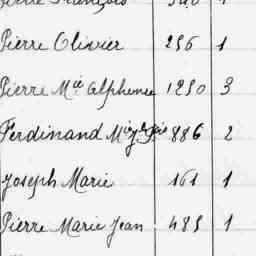 Pierre Olivier 256 1
Pierre Mie Alphonse 1250 3
Ferdinand Mie 886 2
Joseph Marie 161 1
Pierre Marie Jean 485 1